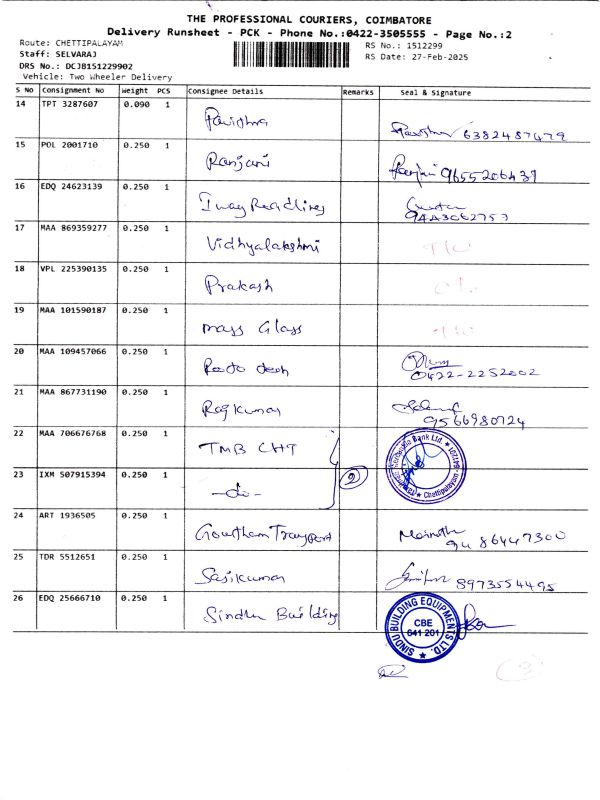 THE PROFESSIONAL COURIERS, COIMBATORE
Delivery Runsheet - PCK - Phone No.:0422-3505555 - Page No.:2
Route: CHETTIPALAYAM
RS No.: 1512299
Staff: SELVARAJ
RS Date: 27-Feb-2025
DRS No.: DCJB151229902
Vehicle: Two Wheeler Delivery
S No Consignment No Weight PCS Consignee Details Remarks Seal & Signature
14 TPT 3287607 0.090 1 Pavithra 6382487479
15 POL 2001710 0.250 1 Ranjani Ranjani 9655206439
16 EDQ 24623139 0.250 1
17 MAA 869359277 0.250 1 Vidhyalakshmi
18 VPL 225390135 0.250 1 Prakash
19 MAA 101590187 0.250 1 Mass Glass
20 MAA 109457066 0.250 1 0422-2252002
21 MAA 867731190 0.250 1 Rajkumar 9566980724
22 MAA 706676768 0.250 1 TMB CHT
23 IXM 507915394 0.250 1 -do- 2
Bank Ltd. Chettipalayam - 641201
24 ART 1936505 0.250 1 Gowtham Transport 94 86447300
25 TDR 5512651 0.250 1 Sasikumar 8973554495
26 EDQ 25666710 0.250 1 Sindhu Building
SINDU BUILDING EQUIPMENTS LTD.
CBE
641 201
3